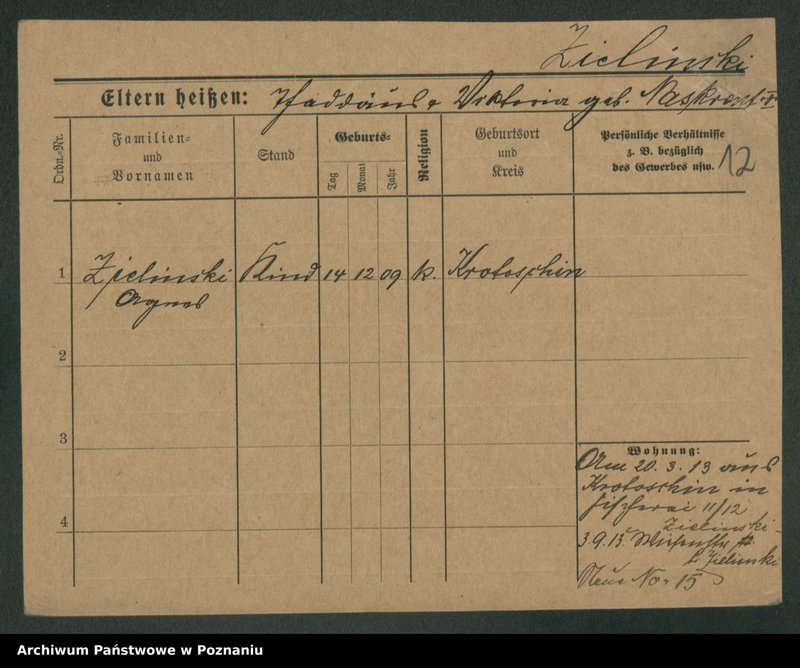 Zielinski
Eltern heißen: Thaddäus u Viktoria geb.
12
Ordn.-Nr.
Familien-
und
Vornamen
Stand
Geburts-
Tag
Monat
Jahr
Religion
Geburtsort
und
Kreis
Persönliche Verhältnisse
z. B. bezüglich
des Gewerbes usw.
1 Zielinski Kind 14 12 09 k. Krotoschin
Agnes
2
3
4
Wohnung:
Am 20. 3. 13 aus
Krotoschin in
Fischerei 11/12
Zielinski
3.9.13. Wiesenstr
b. Zielinski
Neue No 15
Archiwum Państwowe w Poznaniu